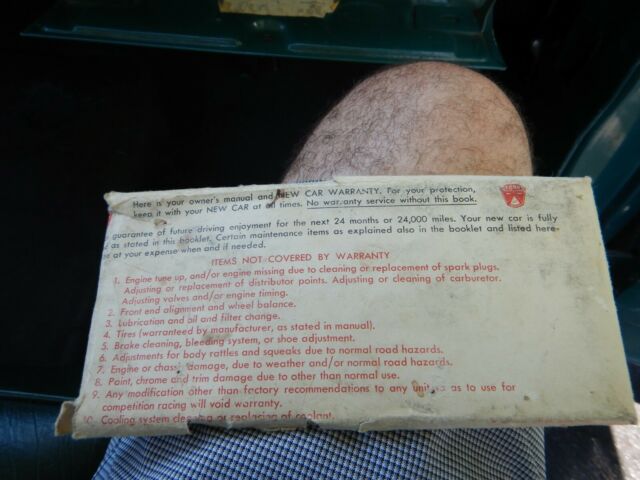 Here is your owner's manual and NEW CAR WARRANTY. For your protection,
keep it with your NEW CAR at all times. No warranty service without this book.
guarantee of future driving enjoyment for the next 24 months or 24,000 miles. Your new car is fully
as stated in this booklet. Certain maintenance items as explained also in the booklet and listed here-
at your expense when and if needed.
ITEMS NOT COVERED BY WARRANTY
1. Engine tune up, and/or engine missing due to cleaning or replacement of spark plugs.
Adjusting or replacement of distributor points. Adjusting or cleaning of carburetor.
Adjusting valves and/or engine timing.
2. Front end alignment and wheel balance.
3. Lubrication and oil and filter change.
4. Tires (warranteed by manufacturer, as stated in manual).
5. Brake cleaning, bleeding system, or shoe adjustment.
6. Adjustments for body rattles and squeaks due to normal road hazards.
7. Engine or chassis damage, due to weather and/or normal road hazards.
8. Paint, chrome and trim damage due to other than normal use.
9. Any modification other than factory recommendations to any unit so as to use for
competition racing will void warranty.
10. Cooling system cleaning or replacing of coolant.